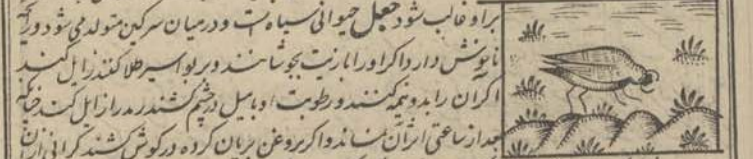 براو غالب شود جعل حیوانی سیاه است و در میان سرکین متولد می شود و رایحه
ناخوش دارد اکر او را با زیت بجوشانند و بر بواسیر طلا کنند زایل کند
اکر آن را بدو نیمه کنند و رطوبت او بامیل در چشم کشند رمد را زایل کند چنانکه
بعد از ساعتی اثر آن نماند و اکر بروغن بریان کرده در کوش کشند کرانی آن